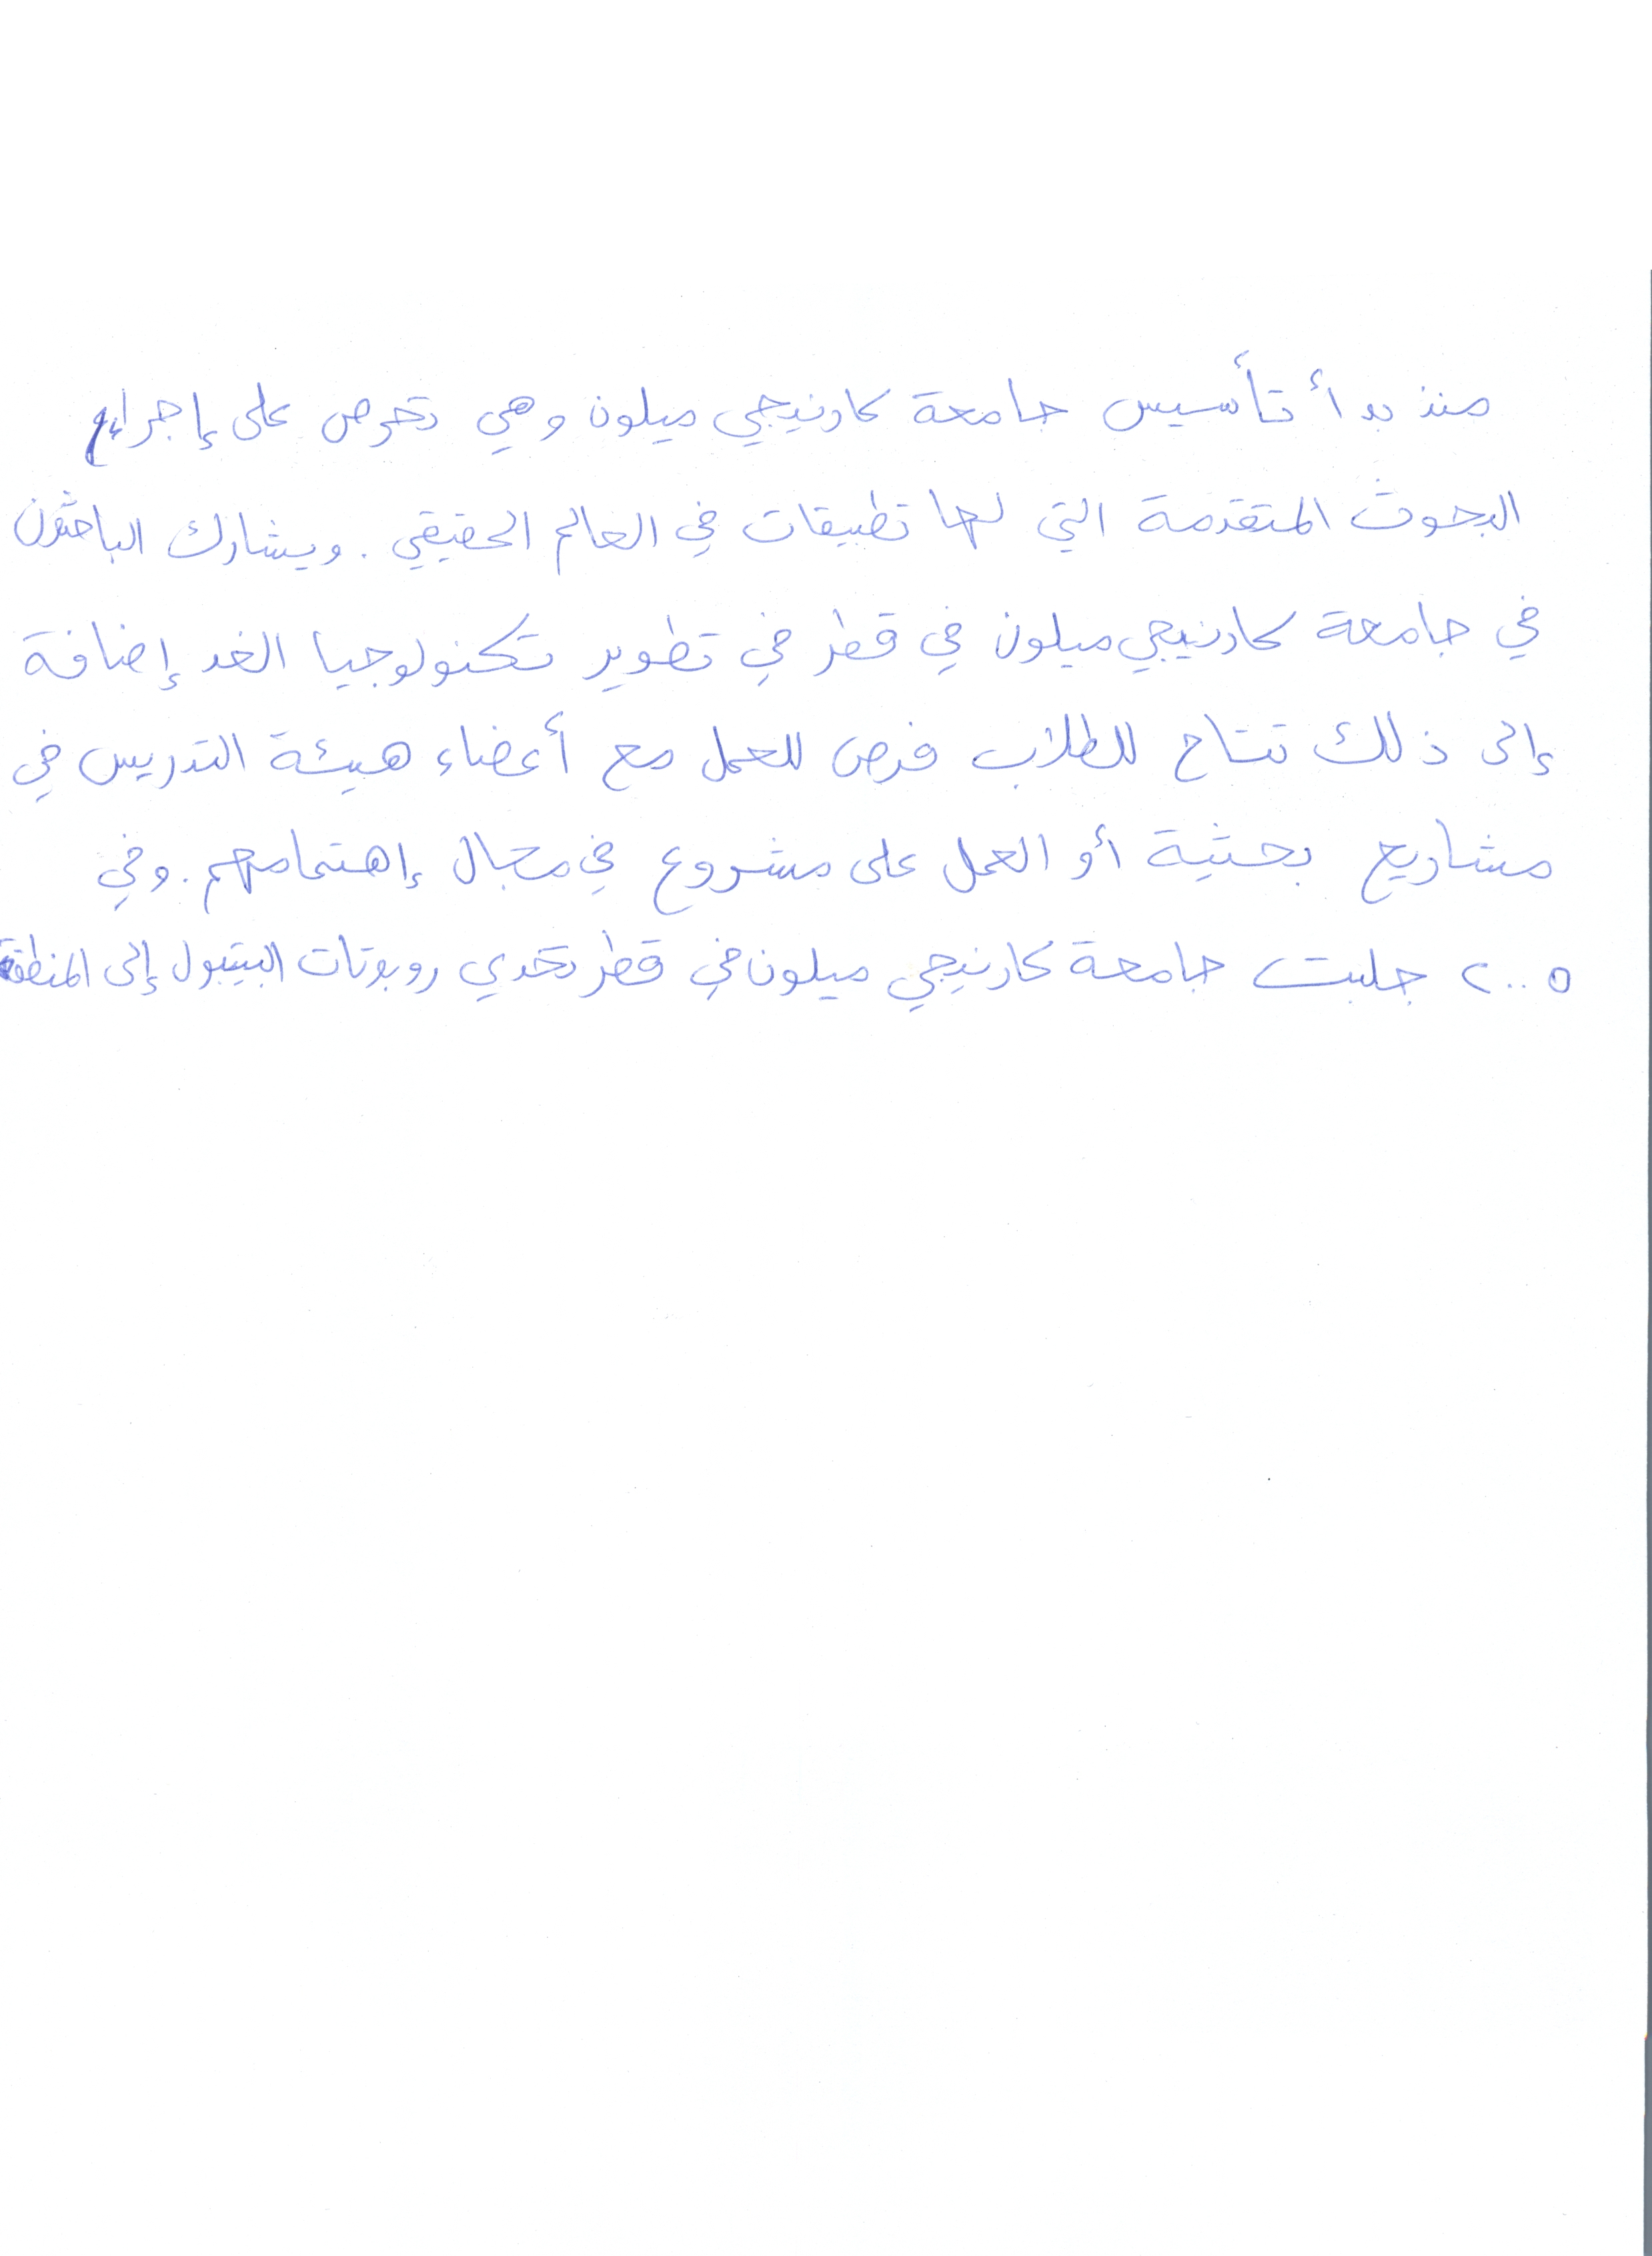 منذ بدأ تأسيس جامعة كارنيجي ميلون وهي تحرص على إجراء
البحوث المتقدمة التي لها تطبيقات في العالم الحقيقي. ويشارك الباحثون
في جامعة كارنيجي ميلون في قطر في تطوير تكنولوجيا الغد إضافة
إلى ذلك تتاح للطلاب فرص للعمل مع أعضاء هيئة التدريس في
مشاريع بحثية أو العمل على مشروع في مجال إهتمامهم. وفي
٢٠٠٥ جلبت جامعة كارنيجي ميلون في قطر تحدي روبوتات البيتبول إلى المنطقة